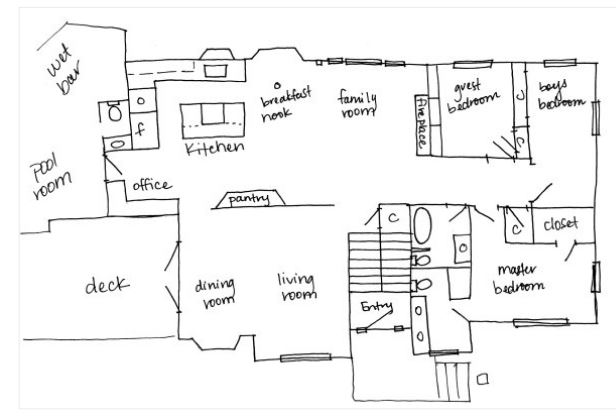 wet
bar
pool
room
o
f
Kitchen
breakfast
nook
family
room
fireplace
guest
bedroom
c
c
boys
bedroom
office
pantry
deck
dining
room
living
room
Entry
C
C
closet
master
bedroom